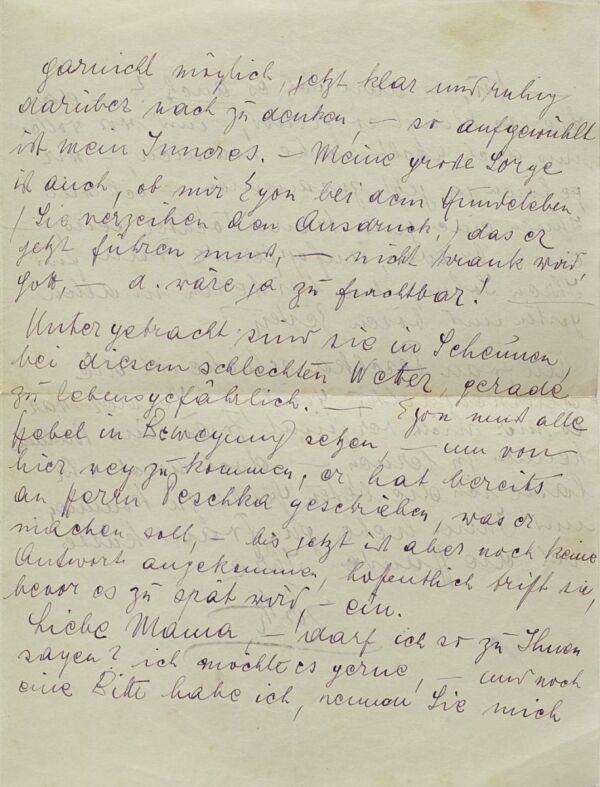 garnicht möglich, jetzt klar und ruhig
darüber nach zu denken, – so aufgewühlt
ist mein Inneres. – Meine große Sorge
ist auch, ob mir Egon bei dem Hundeleben
(Sie verzeihen den Ausdruck,) das er
jetzt führen muß, – nicht krank wird,
Gott, – d. wäre ja zu furchtbar!
Untergebracht sind sie in Scheunen,
bei diesem schlechten Wetter, gerade
zu lebensgefährlich. – Egon muß alle
Hebel in Bewegung setzen, – um von
hier weg zu kommen, er hat bereits
an Herrn Peschka geschrieben, was er
machen soll, – bis jetzt ist aber noch keine
Antwort angekommen, hofentlich trift sie,
bevor es zu spät wird, – ein.
Liebe Mama, – darf ich so zu Ihnen
sagen? ich möchte es gerne, – und noch
eine Bitte habe ich, nennen Sie mich